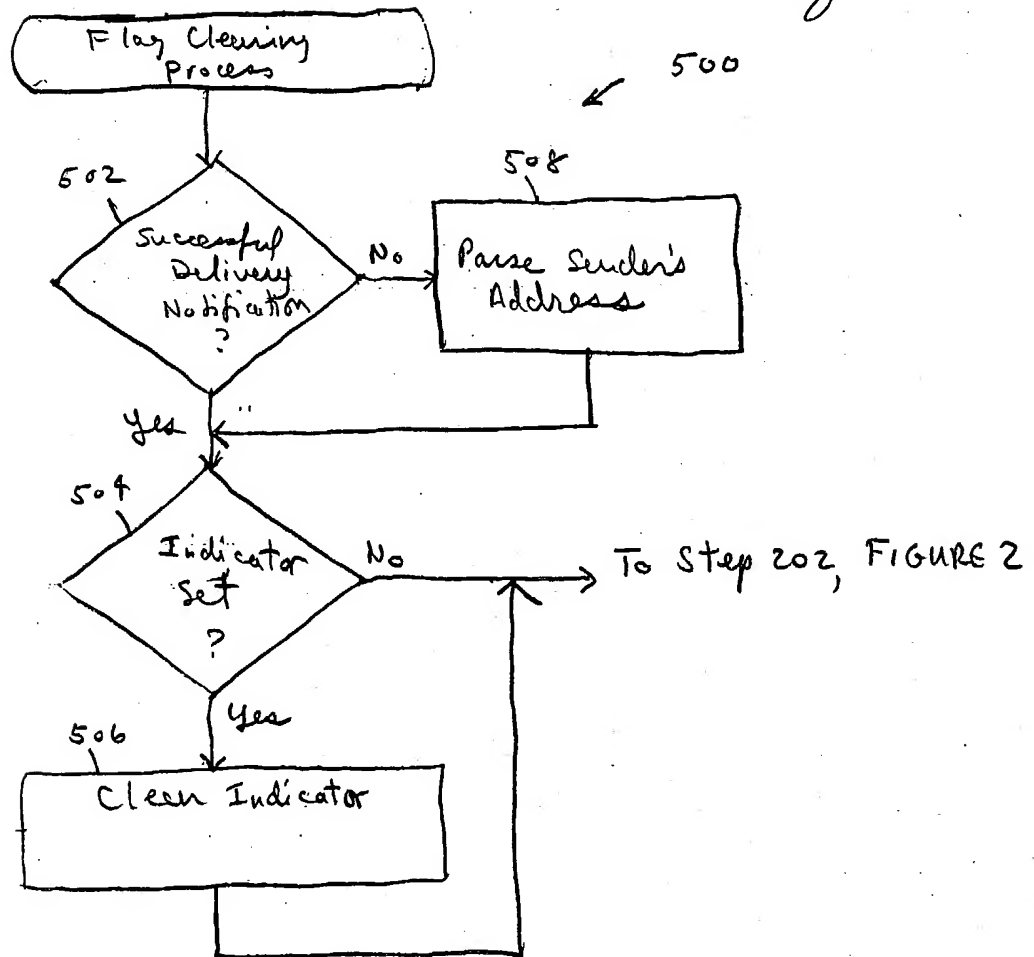 Flag Clearing
Process
500
502
Successful
Delivery
Notification
?
No
508
Parse Sender's
Address
Yes
504
Indicator
Set
?
No
To Step 202, FIGURE 2
Yes
506
Clear Indicator